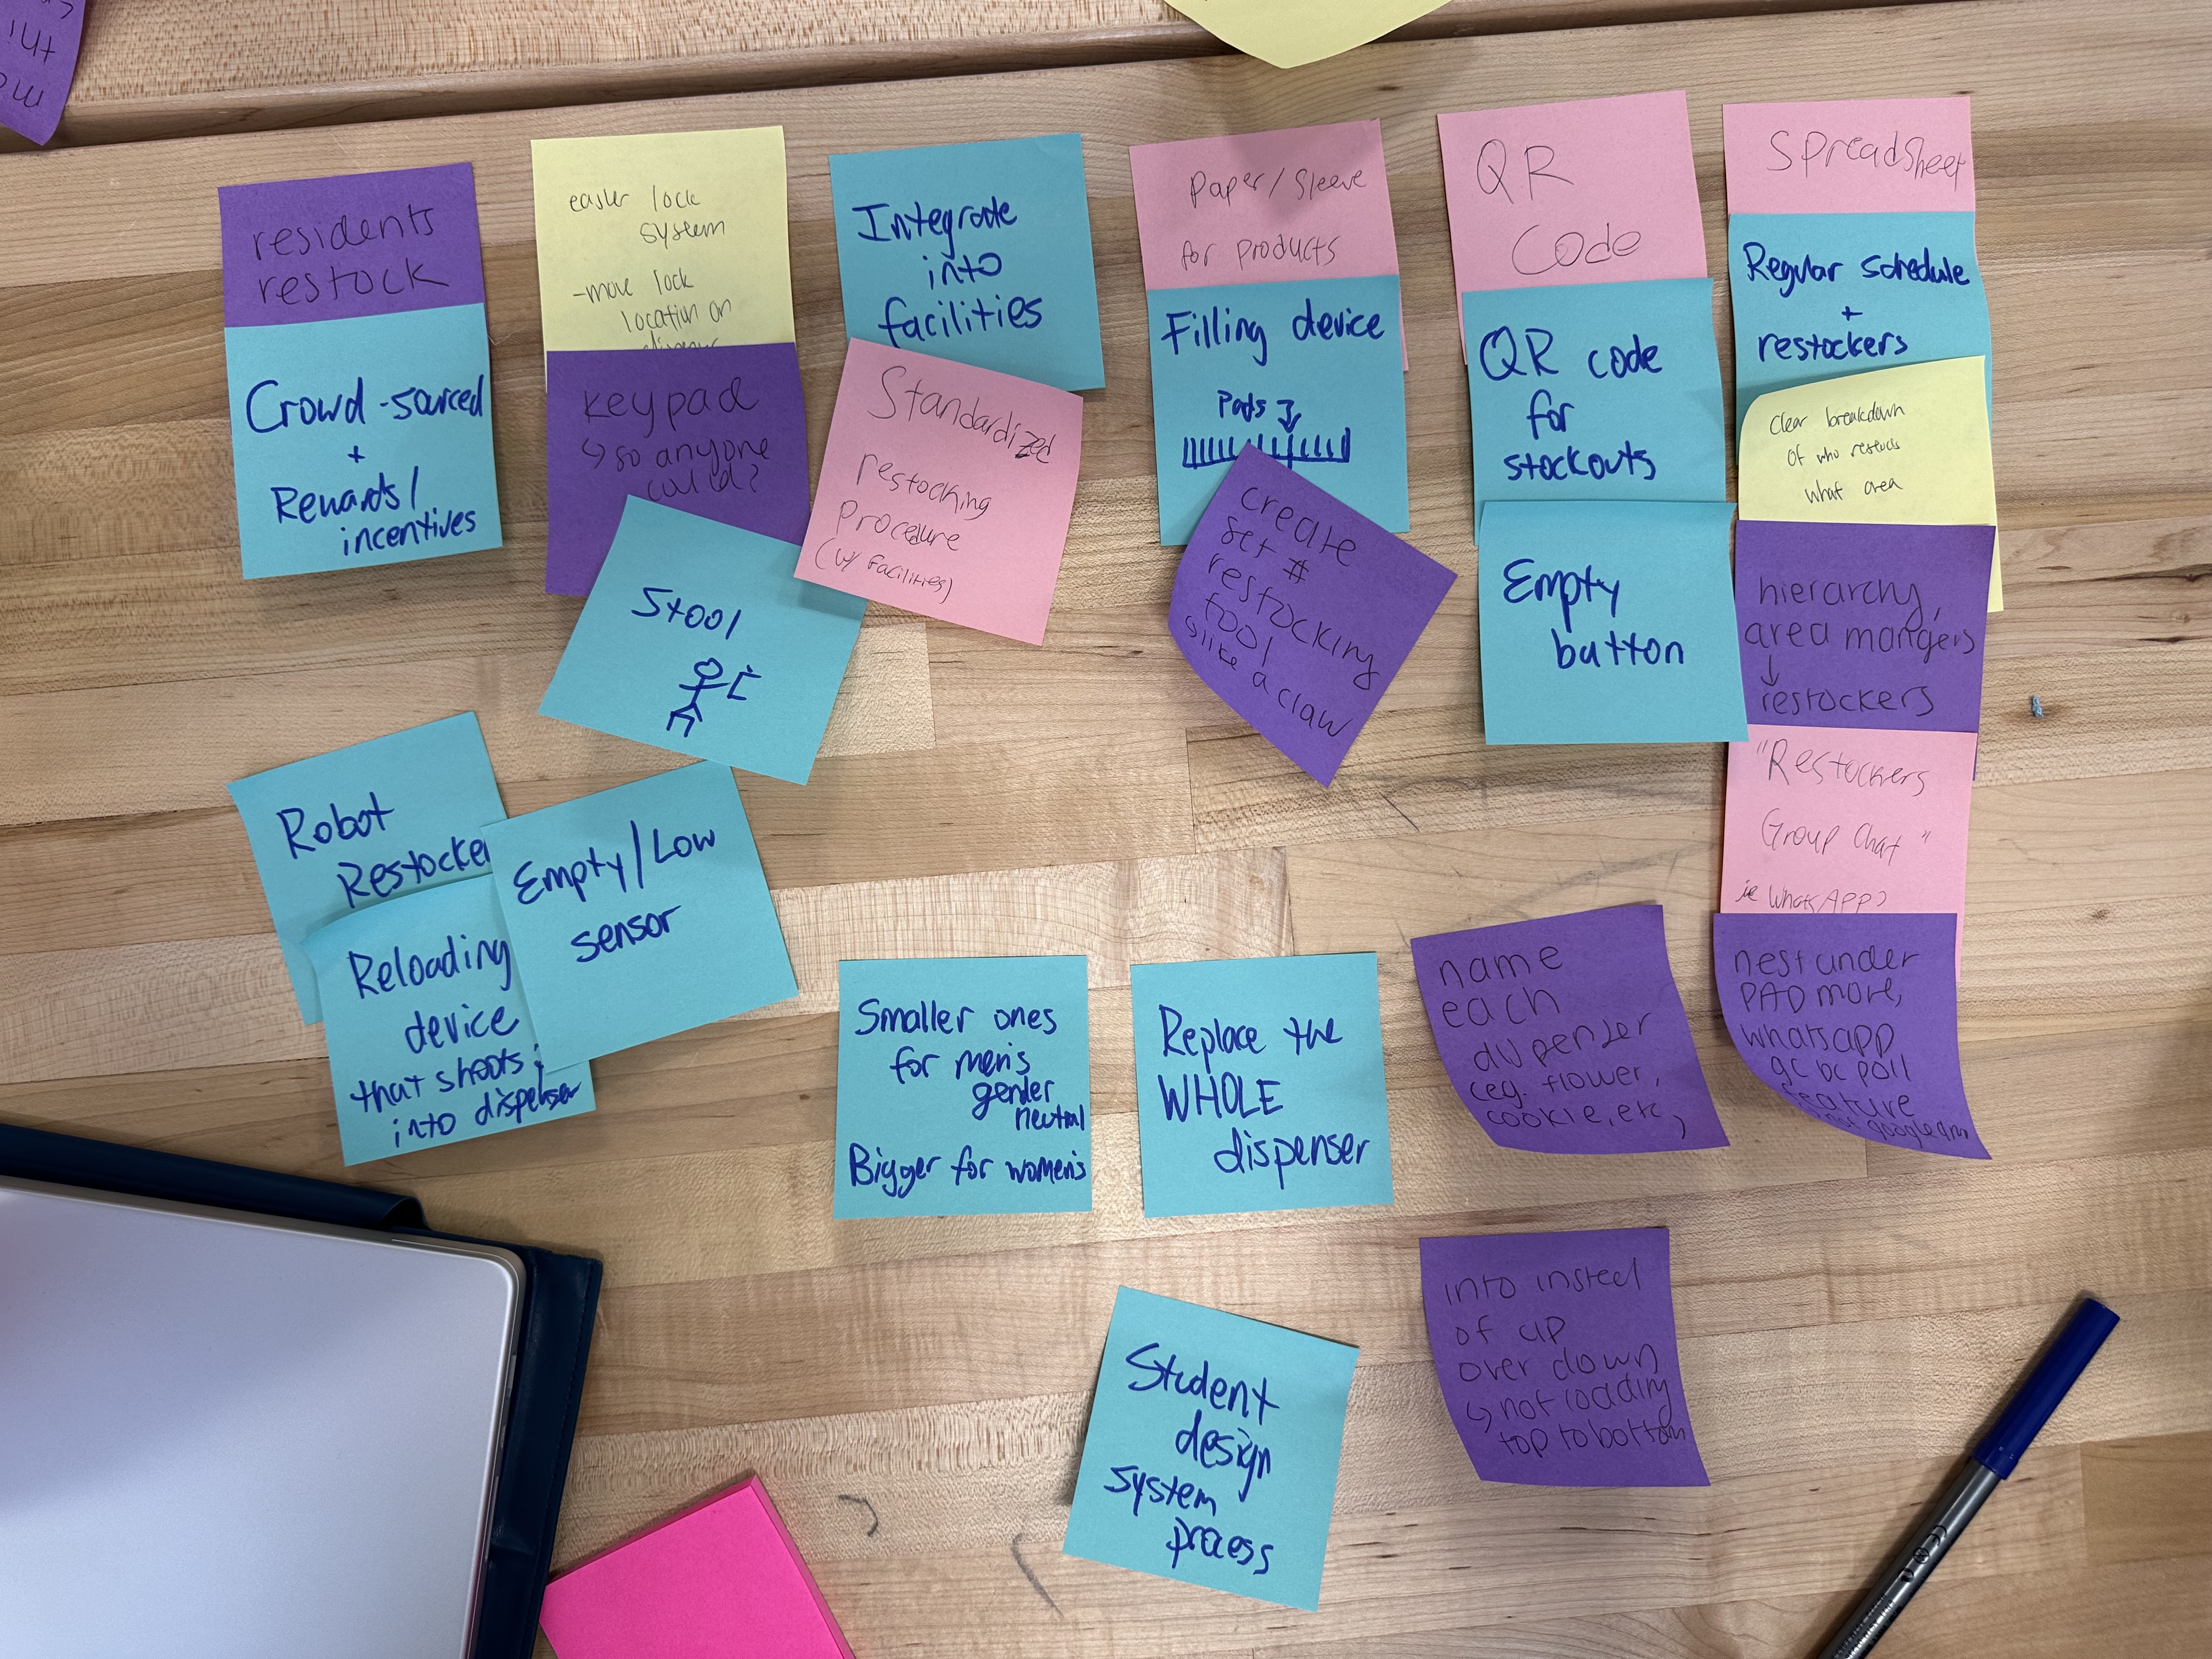 residents
restock
Crowd-sourced
+
Rewards/
incentives
easier lock
system
-move lock
location on
keypad
↳ so anyone
could?
Stool
Integrate
into
facilities
Standardized
restocking
Procedure
(w/ facilities)
Paper/Sleeve
for products
Filling device
Pads
create
set #
restocking
tool
like a claw
QR
Code
QR code
for
stockouts
Empty
button
Spreadsheet
Regular schedule
+
restockers
clear breakdown
of who restocks
what area
hierarchy,
area mangers
↓
restockers
"Restockers
Group Chat"
ie WhatsApp?
nest under
PAD more,
whatsapp
gc bc poll
feature
Robot
Restocker
Reloading
device
that shoots
into dispenser
Empty/Low
sensor
Smaller ones
for men's
gender
neutral
Bigger for women's
Replace the
WHOLE
dispenser
name
each
dispenser
(eg. flower,
cookie, etc,)
Student
design
system
process
into insted
of up
over down
↳ not loading
top to bottom